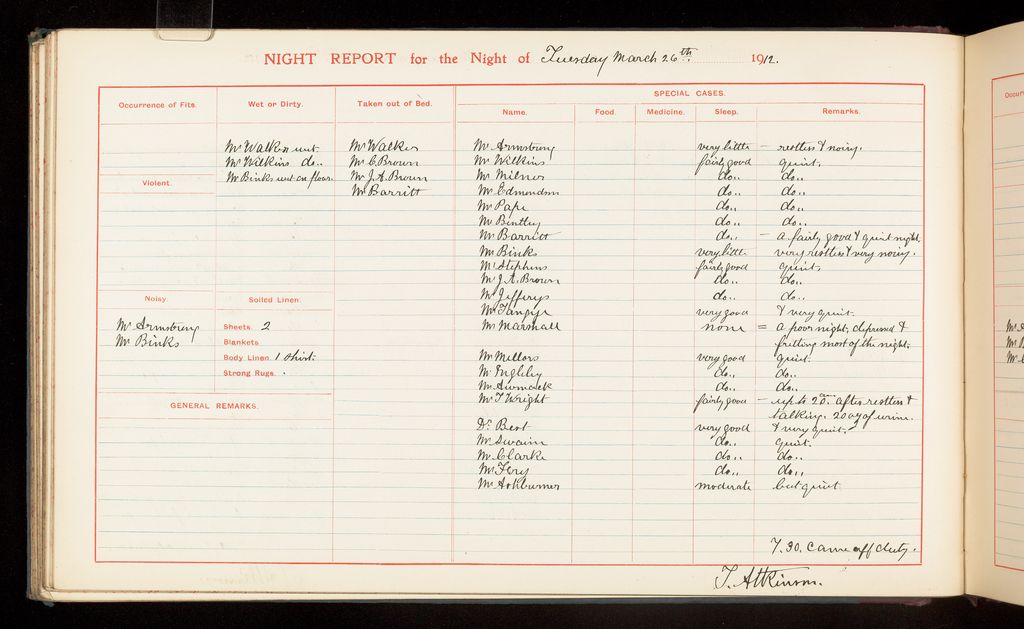 NIGHT REPORT for the Night of Tuesday March 26th 1912.
Occurrence of Fits.
Wet or Dirty.
Taken out of Bed.
SPECIAL CASES.
Name. Food. Medicine. Sleep. Remarks.
Mr Walker wet
Mr Wilkins do..
Mr Binks wet on floor.
Mr Walker
Mr C. Brown
Mr J. A. Brown
Mr Barritt
Violent.
Noisy.
Mr Armstrong
Mr Binks
Soiled Linen.
Sheets. 2
Blankets
Body Linen. 1 shirt.
Strong Rugs.
GENERAL REMARKS.
Mr Armstrong very little – restless & noisy.
Mr Wilkins fairly good quiet.
Mr Milner do.. do..
Mr Edmondson do.. do..
Mr Pape do.. do..
Mr Bentley do.. do..
Mr Barritt do.. – a fairly good & quiet night.
Mr Binks very little very restless & very noisy.
Mr Stephens fairly good quiet.
Mr J. A. Brown do.. do..
Mr Jefferys do.. do..
Mr Tangye very good & very quiet.
Mr Marshall none = a poor night, depressed &
fretting most of the night.
Mr Mellors very good quiet.
Mr Ingleby do.. do..
Mr do.. do..
Mr T Wright fairly good – up to 2 am after restless &
talking. 20 oz of urine.
Dr Best very good & very quiet.
Mr Swain do.. quiet.
Mr Clarke do.. do..
Mr Fery do.. do..
Mr Ashburner moderate but quiet
7.30. came off duty.
T. Atkinson.